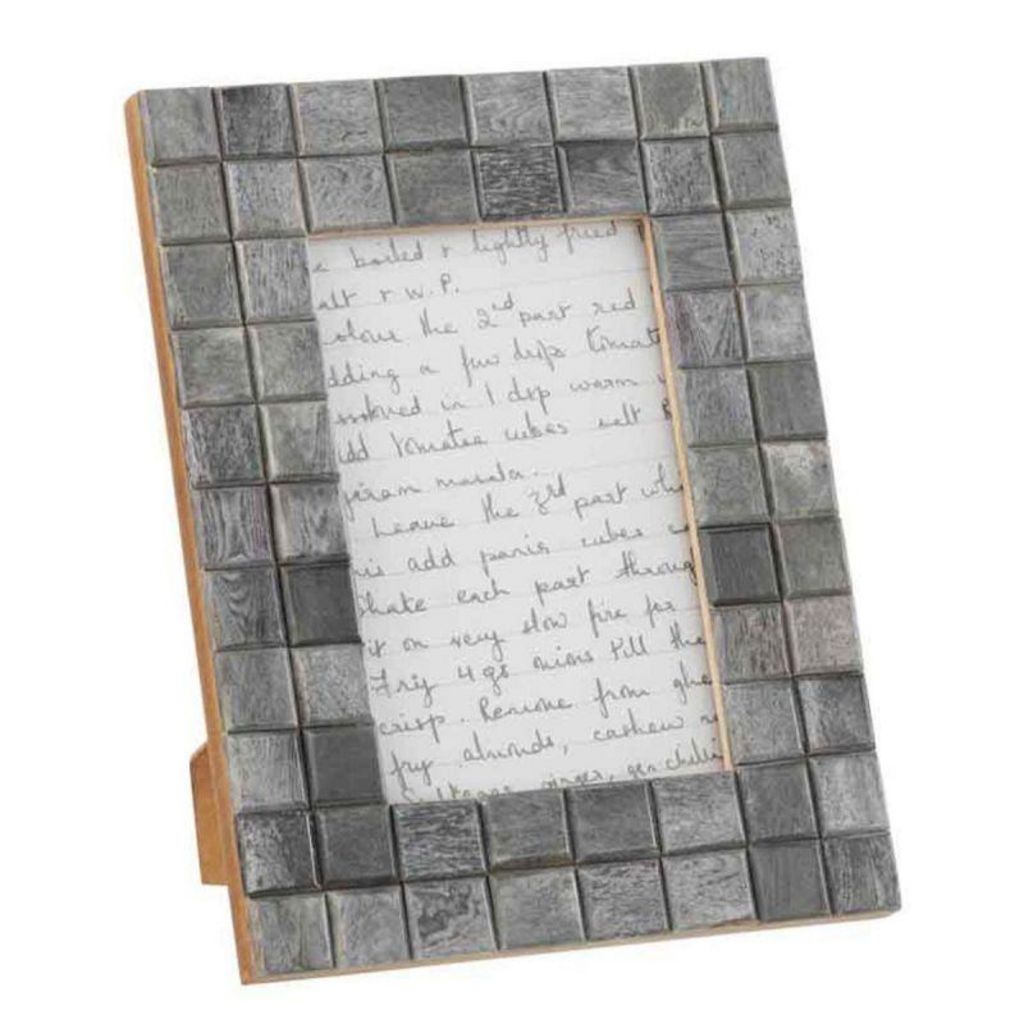 boiled & lightly fried
alt & W.P.
olour the 2nd part red
dding a few drps tomat
ssolved in 1 dsp warm
dd tomatoe cubes salt &
garam masala.
Leave the 3rd part whi
his add panir cubes
Shake each part throug
it on very slow fire for
Fry 4 gs onions till the
crisp. Remove from ghe
fry almonds, cashew n
ginger, gen chilli